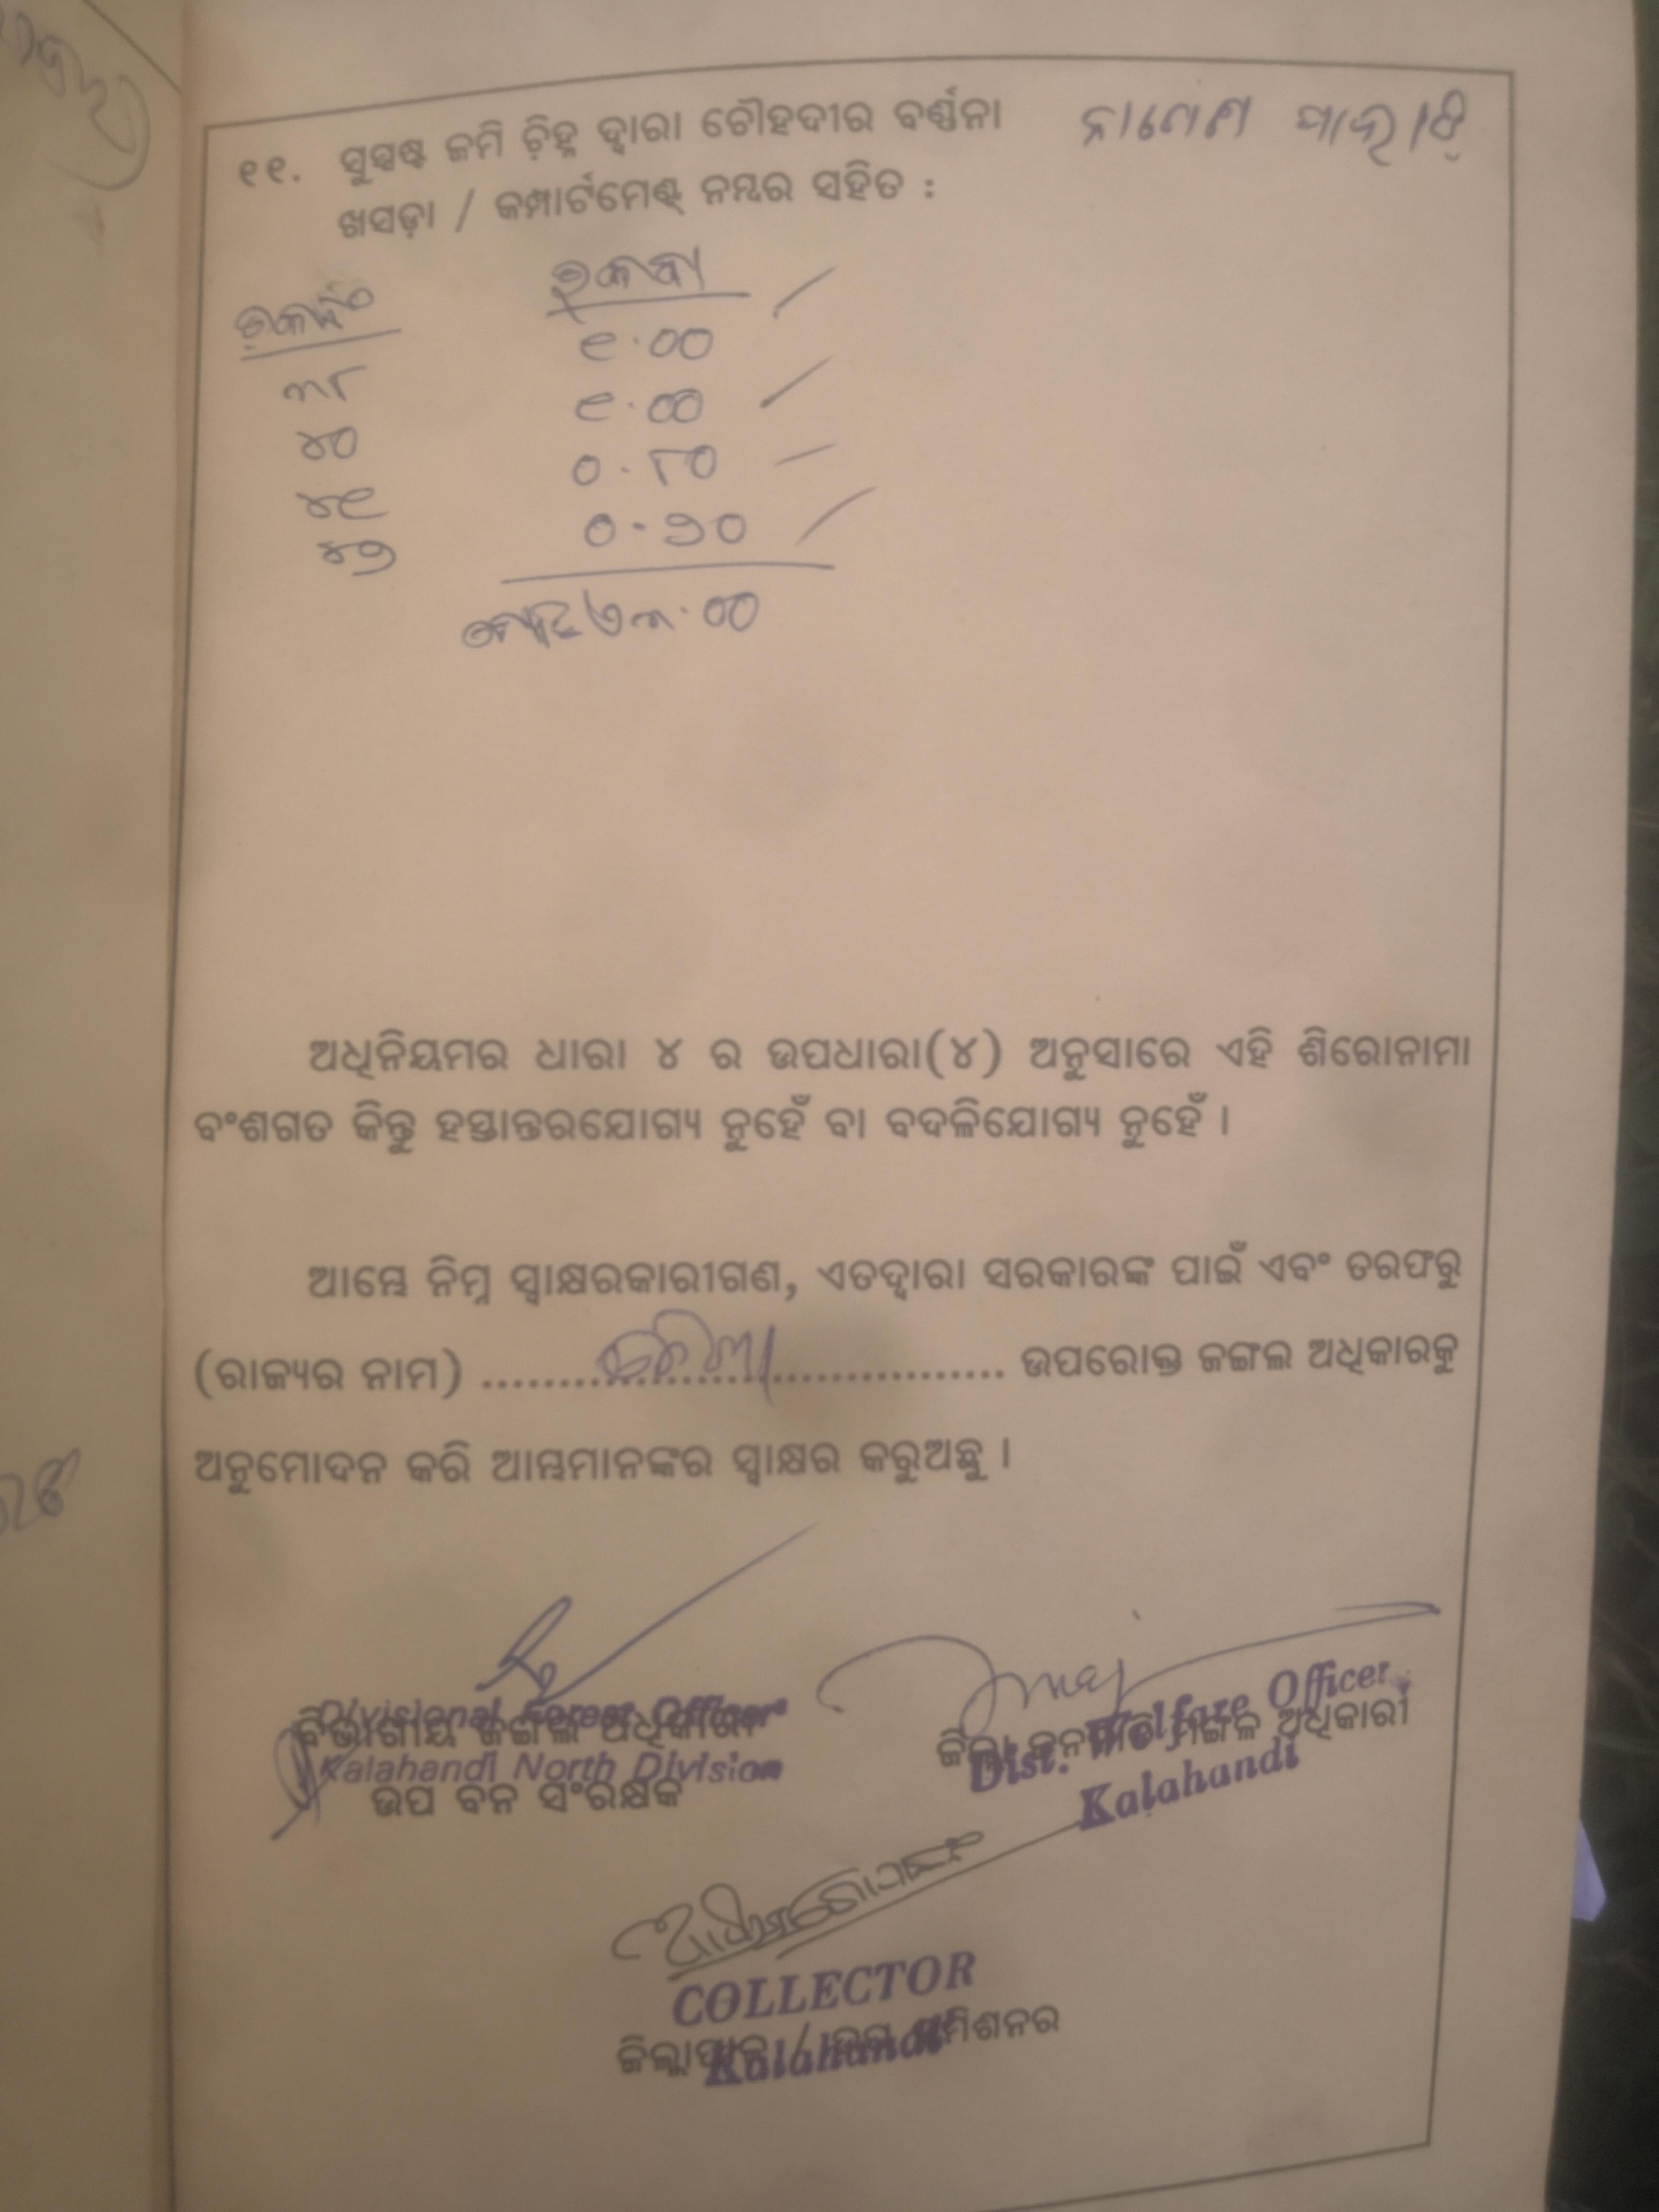 ୧୧. ସୁସ୍ପଷ୍ଟ ଜମି ଚ଼ିହ୍ନ ଦ୍ୱାରା ଚୌହଦୀର ବର୍ଣ୍ଣନା
ଖସଡ଼ା / କମ୍ପାର୍ଟମେଣ୍ଟ୍ ନମ୍ବର ସହିତ :
ରକବା
୧.୦୦
୩୮
୧.୦୦
୪୦
୦.୮୦
୪୧
୦.୨୦
୪୨
୩.୦୦
ଅଧିନିୟମର ଧାରା ୪ ର ଉପଧାରା(୪) ଅନୁସାରେ ଏହି ଶିରୋନାମା
ବଂଶଗତ କିନ୍ତୁ ହସ୍ତାନ୍ତରଯୋଗ୍ୟ ନୁହେଁ ବା ବଦଳିଯୋଗ୍ୟ ନୁହେଁ ।
ଆମ୍ଭେ ନିମ୍ନ ସ୍ୱାକ୍ଷରକାରୀଗଣ, ଏତଦ୍ୱାରା ସରକାରଙ୍କ ପାଇଁ ଏବଂ ତରଫରୁ
(ରାଜ୍ୟର ନାମ) ................................ ଉପରୋକ୍ତ ଜଙ୍ଗଲ ଅଧିକାରକୁ
ଅନୁମୋଦନ କରି ଆମ୍ଭମାନଙ୍କର ସ୍ୱାକ୍ଷର କରୁଅଛୁ ।
Divisional Forest Officer
ବିଭାଗୀୟ ଜଙ୍ଗଲ ଅଧିକାରୀ
Kalahandi North Division
ଉପ ବନ ସଂରକ୍ଷକ
Dist. Welfare Officer
ଜିଲ୍ଲା ଜନଜାତି ମଙ୍ଗଳ ଅଧିକାରୀ
Kalahandi
COLLECTOR
ଜିଲ୍ଲାପାଳ / ଉପ କମିଶନର
Kalahandi